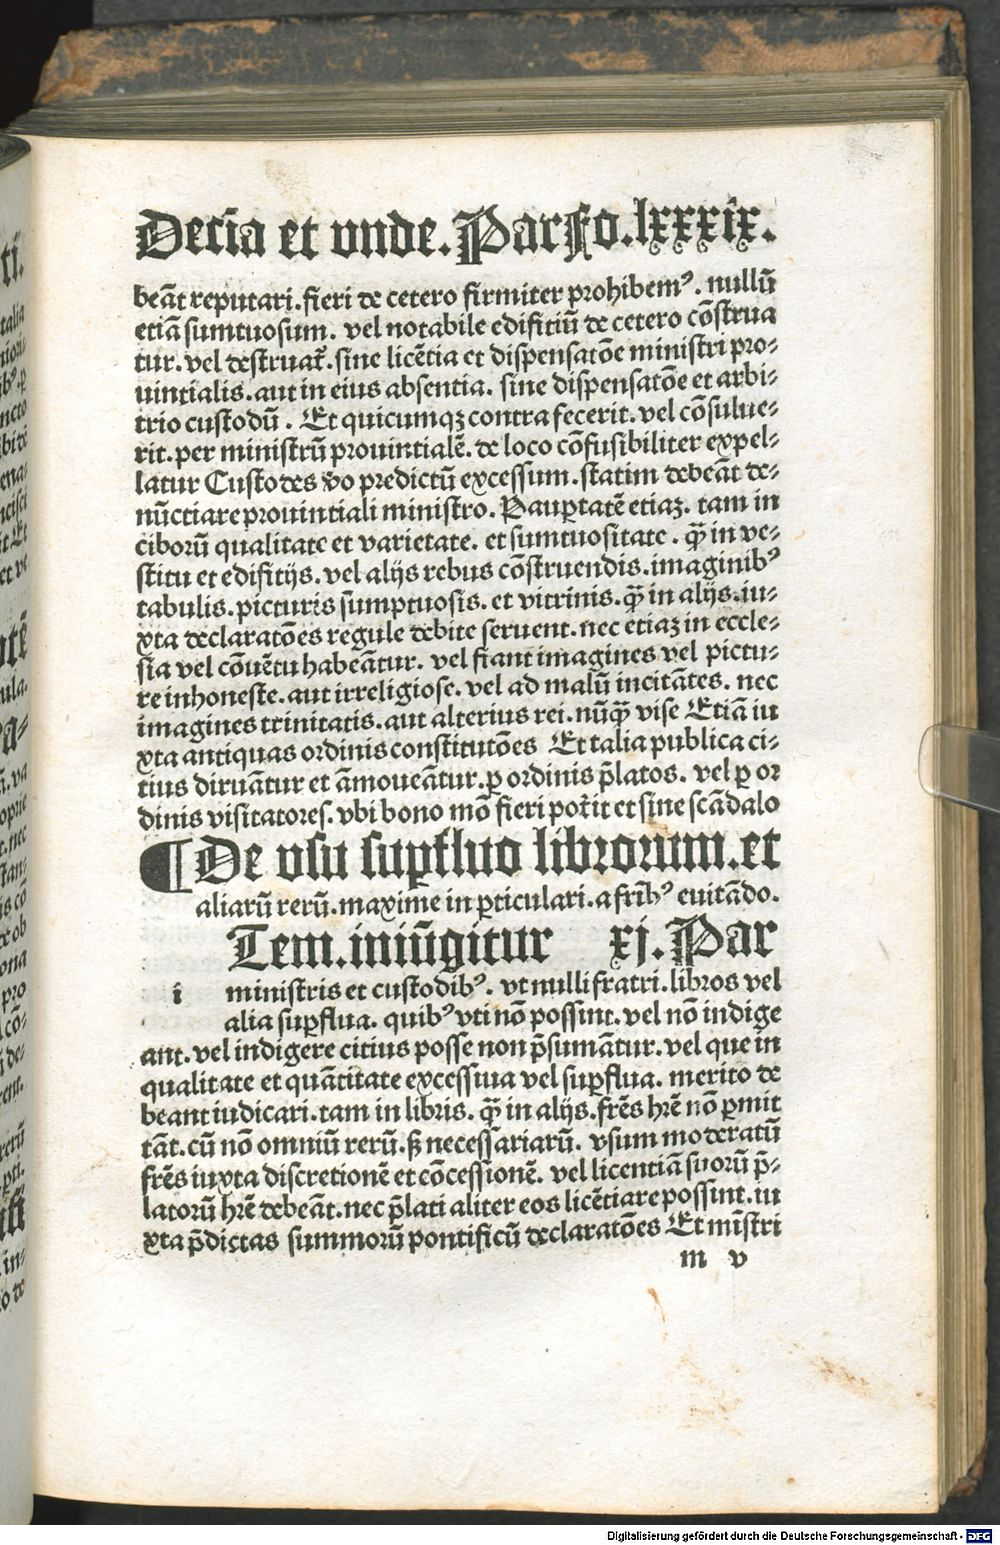 Decīa et vnde. Par Fo. lxxxix.
beāt reputari. fieri de cetero firmiter prohibemꝰ. nullū
etiā sumtuosum. vel notabile edifitiū de cetero cōstrua
tur. vel destruat̄. sine licētia et dispensatōe ministri pro⸗
uintialis. aut in eius absentia. sine dispensatōe et arbi⸗
trio custodū. Et quicumqꝫ contra fecerit. vel cōsulue⸗
rit. per ministrū prouintialē. de loco cōfusibiliter expel⸗
latur Custodes v̄o predictū excessum. statim debeāt de⸗
nūctiare prouintiali ministro. Pauꝑtatē etiaꝫ. tam in
ciborū qualitate et varietate. et sumtuositate. qꝫ̄ in ve⸗
stitu et edifitijs. vel alijs rebus cōstruendis. imaginibꝰ
tabulis. picturis sumptuosis. et vitrinis. qꝫ̄ in alijs. iu⸗
xta declaratōes regule debite seruent. nec etiaꝫ in eccle⸗
sia vel cōuētu habeātur. vel fiant imagines vel pictu⸗
re inhoneste. aut irreligiose. vel ad malū incitātes. nec
imagines trinitatis. aut alterius rei. nūqꝫ̄ vise Etiā iu
xta antiquas ordinis constitutōes Et talia publica ci⸗
tius diruātur et āmoueātur. ꝑ ordinis p̄latos. vel ꝑ or
dinis visitatores. vbi bono mō fieri pot̄it et sine scādalo
¶ De vsu suꝑfluo librorum. et
aliarū rerū. maxime in ꝑticulari. a frībꝰ euitādo.
Tem. iniūgitur xj. Par
i ministris et custodibꝰ. vt nulli fratri. libros vel
alia suꝑflua. quibꝰ vti nō possint. vel nō indige
ant. vel indigere citius posse non p̄sumātur. vel que in
qualitate et quātitate excessiua vel suꝑflua. merito de
beant iudicari. tam in libris. qꝫ̄ in alijs. frēs hrē nō ꝑmit
tāt. cū nō omniū rerū. sꝫ necessariarū. vsum moderatū
frēs iuxta discretionē et cōcessionē. vel licentiā suorū p̄⸗
latorū hrē debeāt. nec p̄lati aliter eos licētiare possint. iu
xta p̄dictas summorū pontificū declaratōes Et mīstri
m v
ti.
talia
ncto
ena⸗
ncisci
it Et
et ve
ula.
a⸗
oprie
t. nec
stan⸗
is cō
de ob
ona
pro
cō⸗
de⸗
rent.
rerū
in⸗
o de
Digitalisierung gefördert durch die Deutsche Forschungsgemeinschaft - DFG